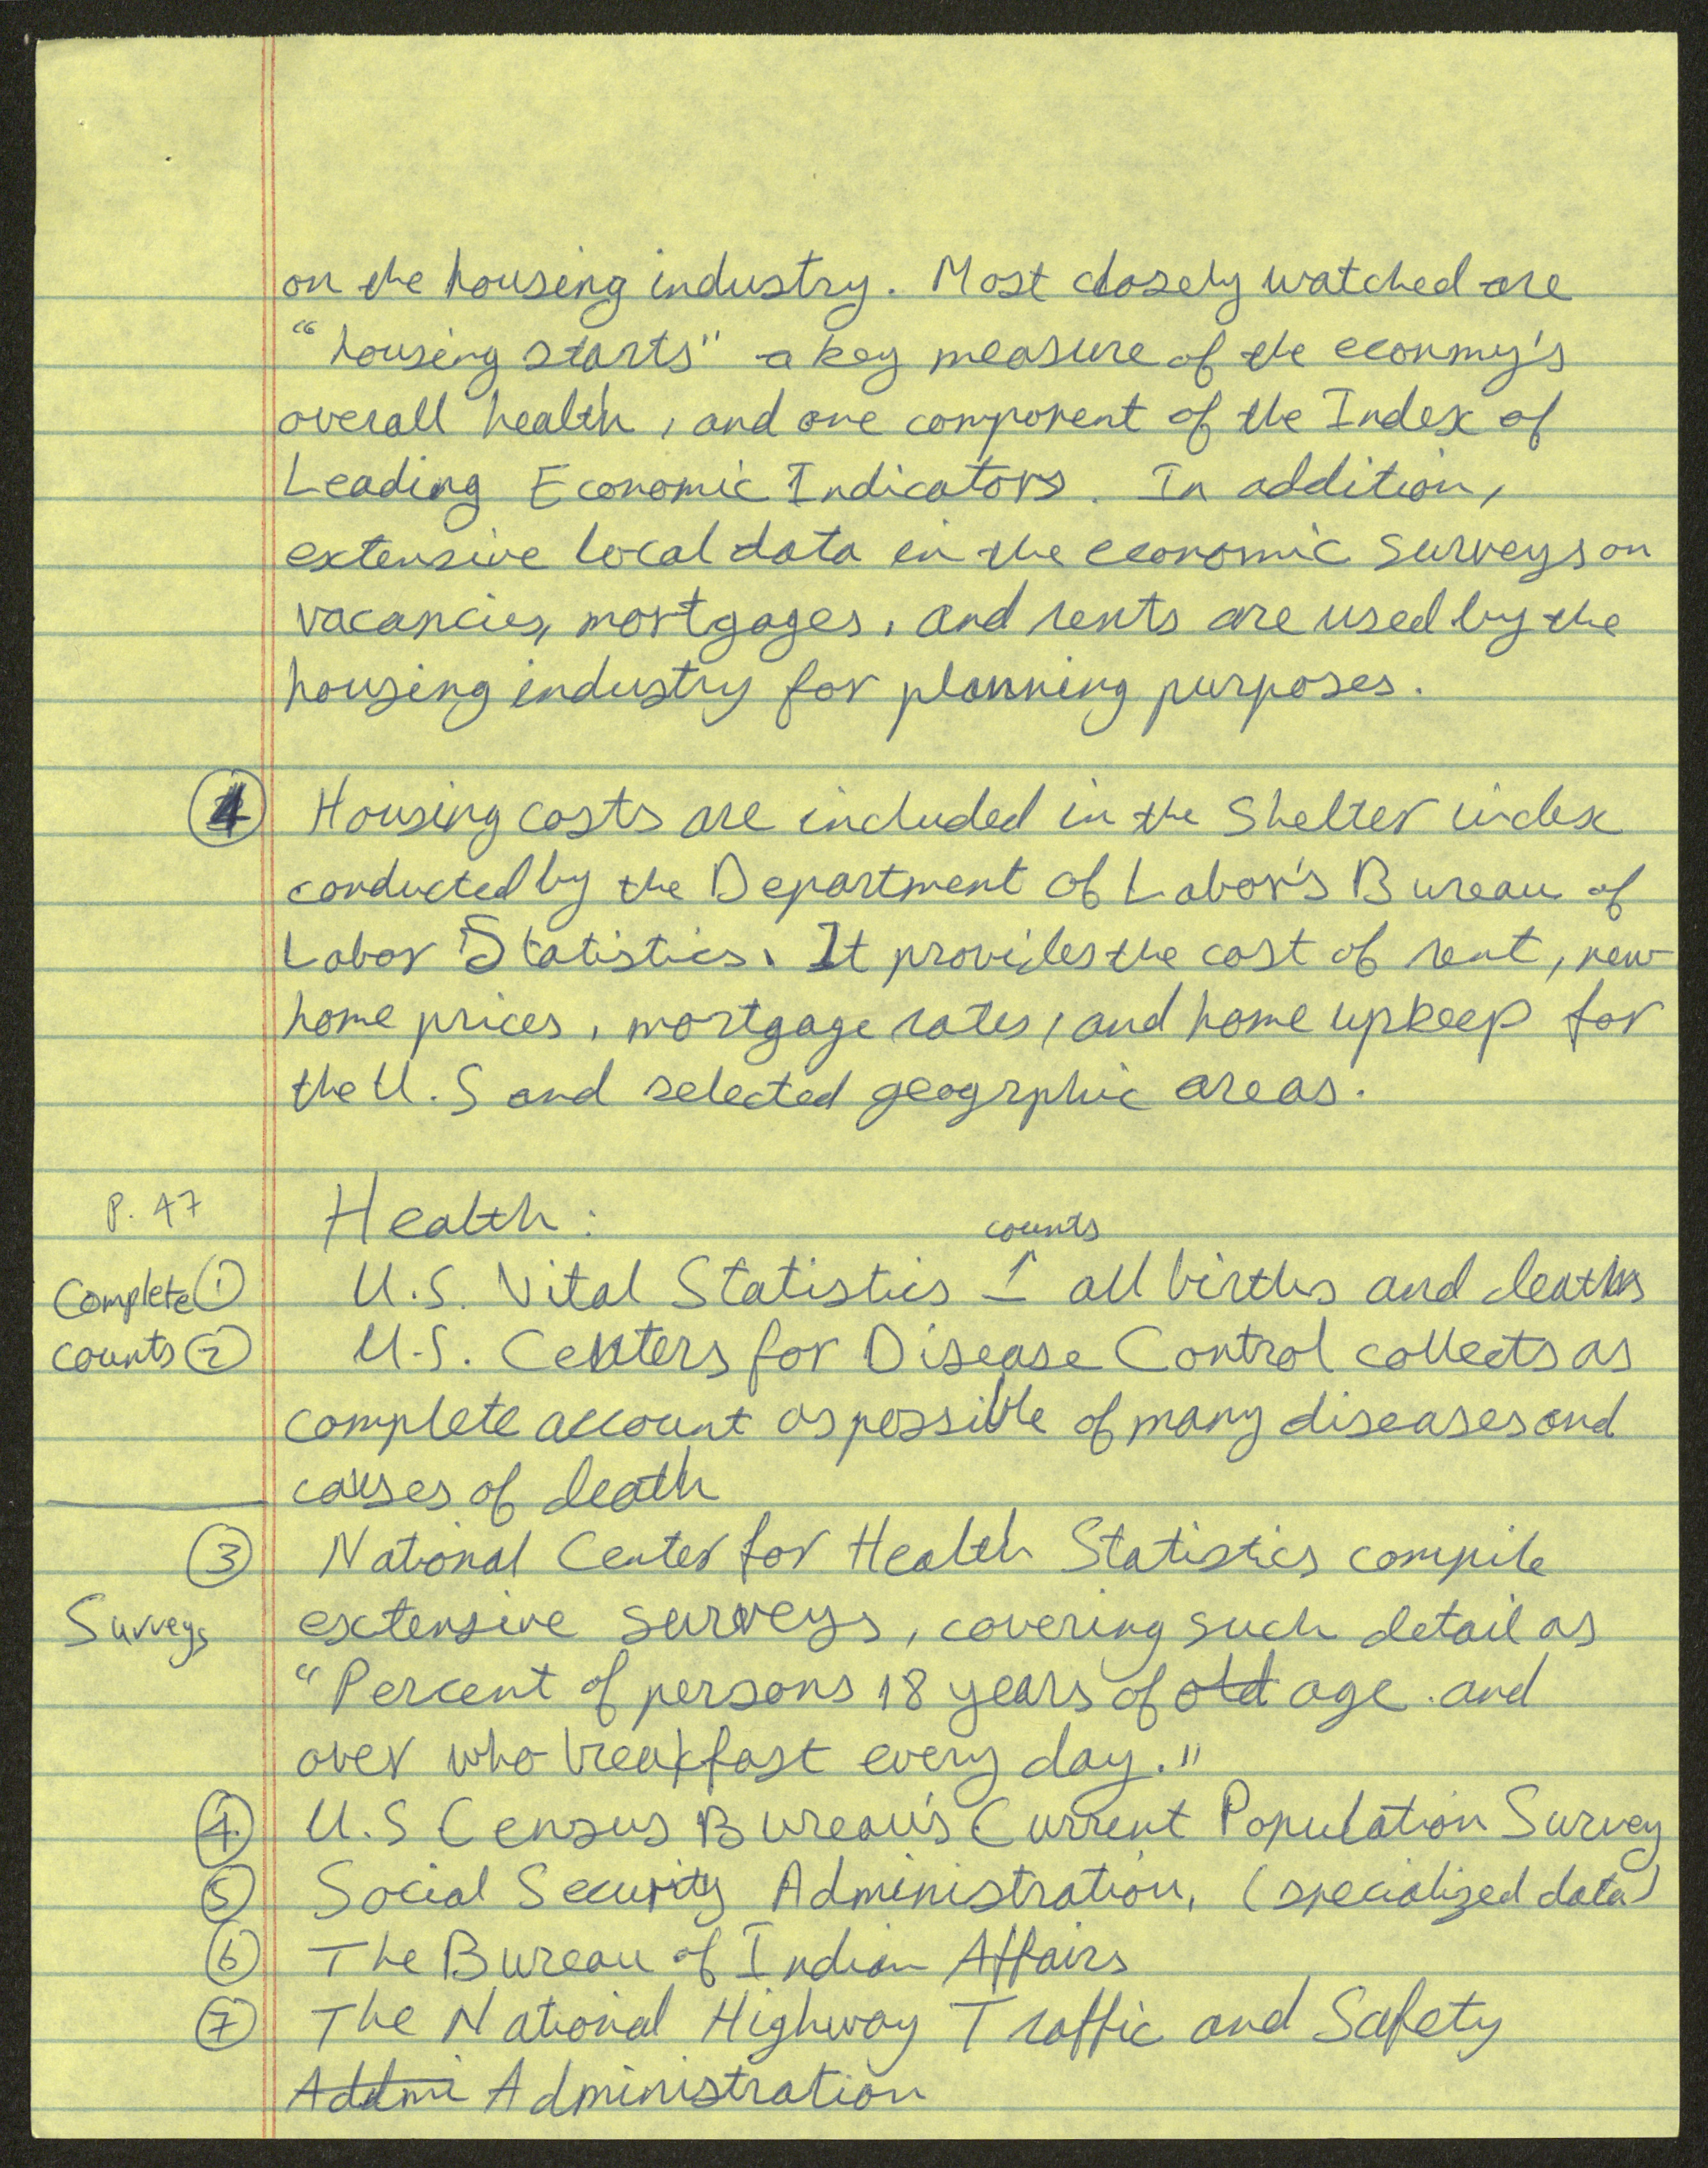 on the housing industry. Most closely watched are
"housing starts" a key measure of the econmy's
overall health, and one component of the Index of
Leading Economic Indicators. In addition,
extensive local data in the economic surveys on
vacancies, mortgages, and rents are used by the
housing industry for planning purposes.
4 Housing costs are included in the Shelter index
conducted by the Department of Labor's Bureau of
Labor Statistics. It provides the cost of rent, new
home prices, mortgage rates, and home upkeep for
the U.S and selected geogrphic areas.
P. 47 Health:
counts
Complete 1 U.S. Vital Statistics all births and deaths
counts 2 U.S. Centers for Disease Control collects as
complete account as possible of many diseases and
causes of death
3 National Center for Health Statistics compile
Surveys extensive surveys, covering such detail as
"Percent of persons 18 years of old age and
over who breakfast every day."
4 U.S Census Bureau's Current Population Survey
5 Social Security Administration, (specialized data)
6 The Bureau of Indian Affairs
7 The National Highway Traffic and Safety
Addmi Administration